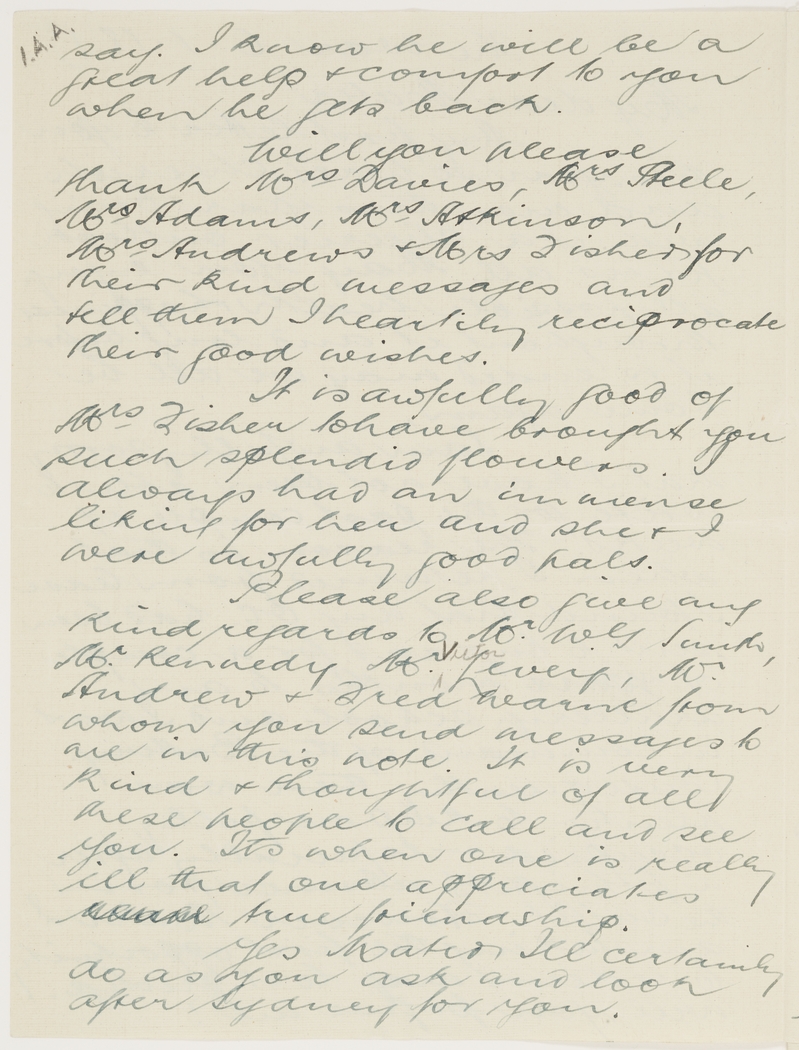 I.A.A.
say. I know he will be a
great help & comfort to you
when he gets back.
Will you please
thank Mrs Davies, Mrs Steele,
Mrs Adams, Mrs Atkinson,
Mrs Andrews & Mrs Fisher for
their kind messages and
tell them I heartily reciprocate
their good wishes.
It is awfully good of
Mrs Fisher to have brought you
such splendid flowers. I
always had an immense
liking for her and she & I
were awfully good pals.
Please also give my
kind regards to Mr. W.G Smith,
Mr. Kennedy Mr. Victor Levery, Mr.
Andrew & Fred Warne from
whom you send messages to
me in this note. It is very
kind & thoughtful of all
these people to call and see
you. Its when one is really
ill that one appreciates
true friendship.
Yes Mater Ill certainly
do as you ask and look
after Sydney for you.